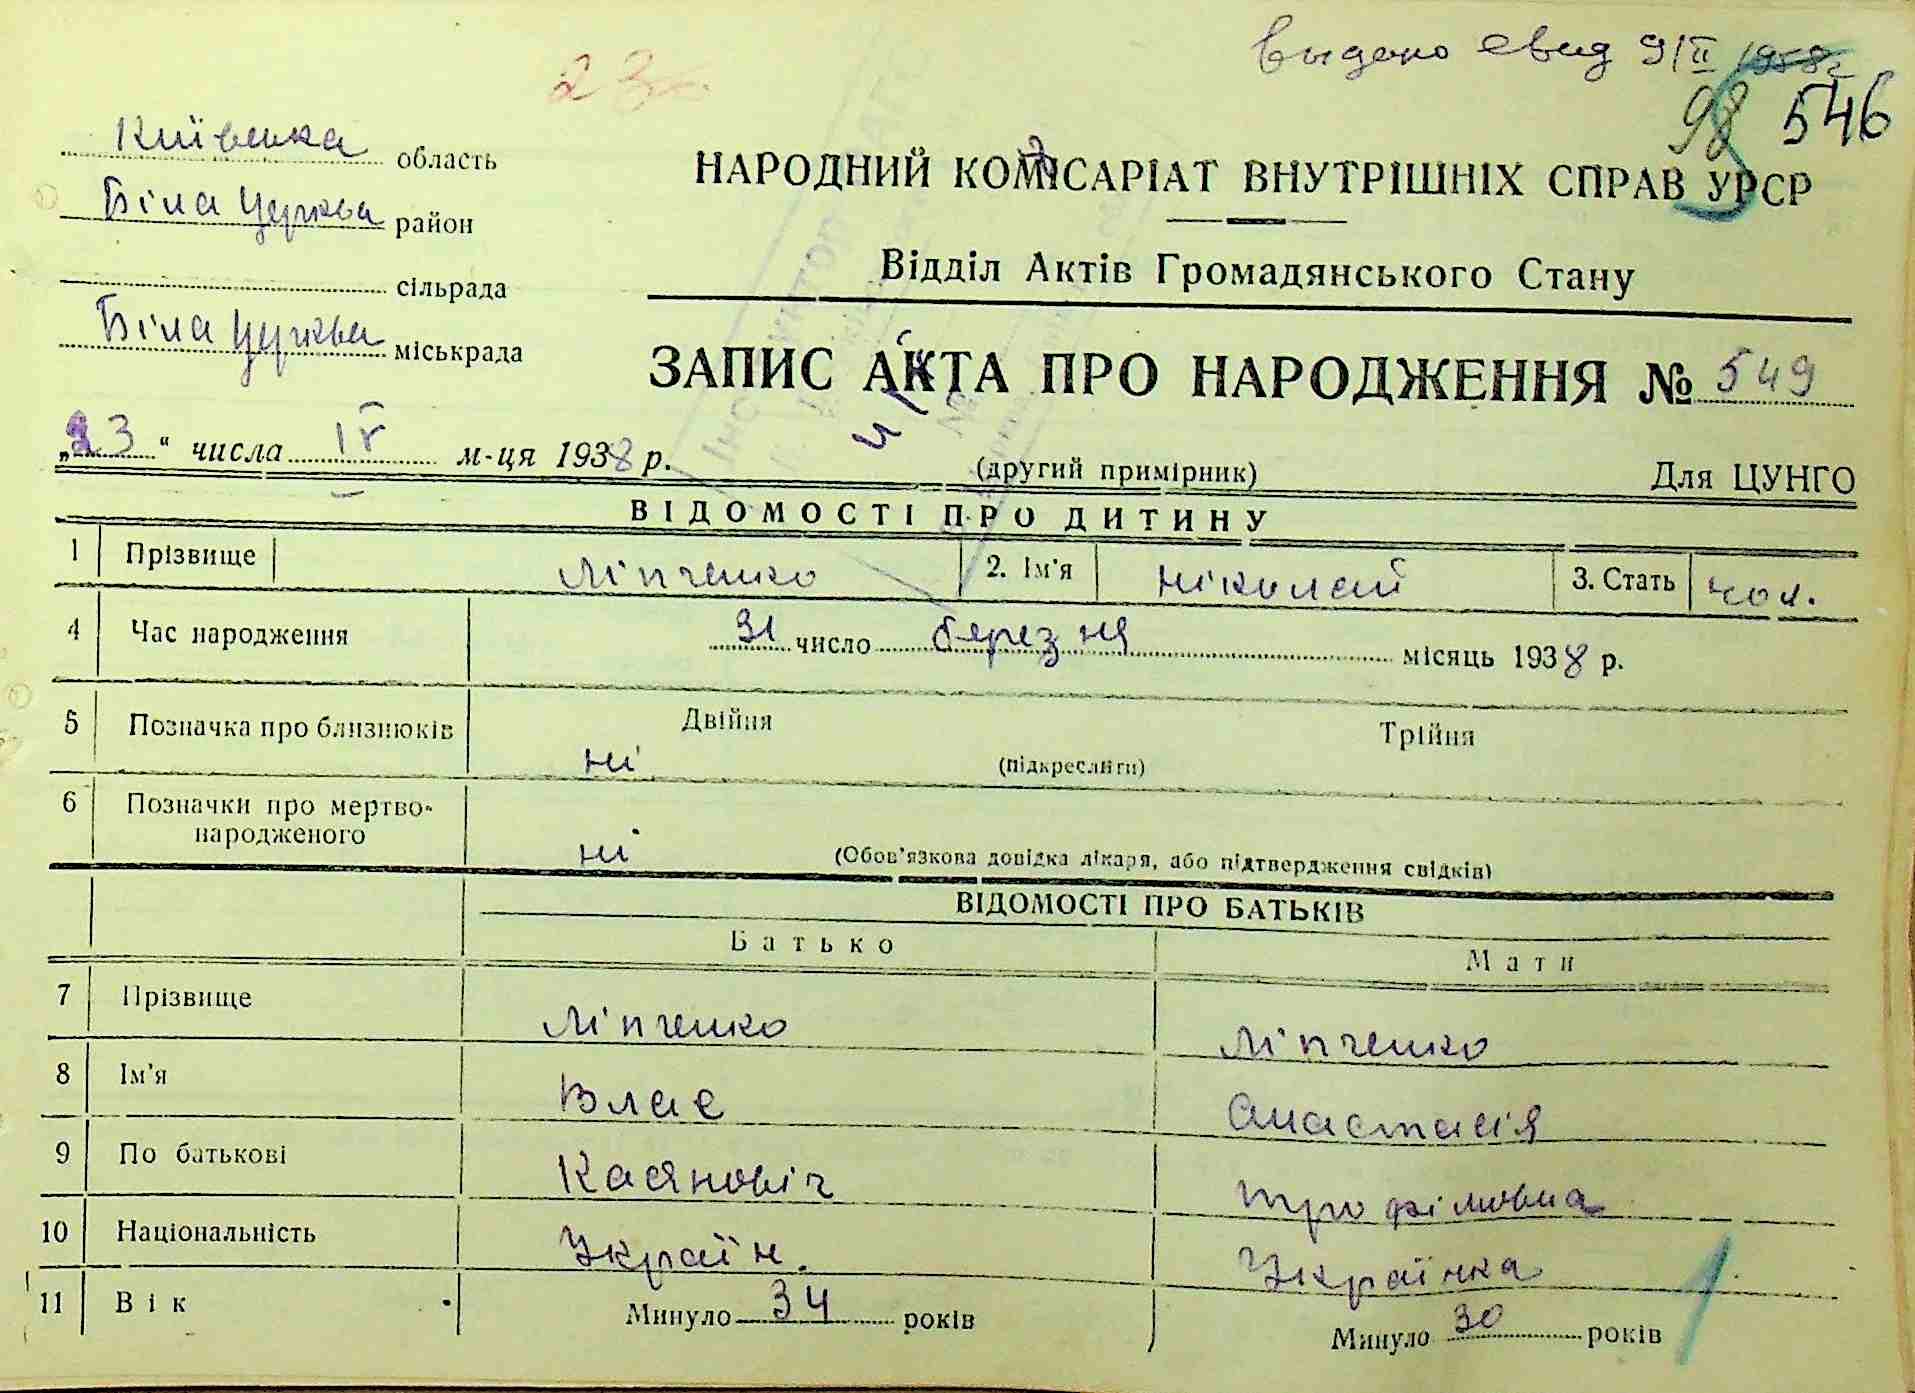 23
выдано свид 9/II 1958г
98 546
Київська область
Біла Церква район
сільрада
Біла Церква міськрада
НАРОДНИЙ КОМІСАРІАТ ВНУТРІШНІХ СПРАВ УРСР
Відділ Актів Громадянського Стану
ЗАПИС АКТА ПРО НАРОДЖЕННЯ № 549
„23“ числа IV м-ця 1938 р.
(другий примірник)
Для ЦУНГО
ВІДОМОСТІ ПРО ДИТИНУ
1 Прізвище Ліпченко 2. Ім'я Ніколай 3. Стать чол.
4 Час народження 31 число березня місяць 1938 р.
5 Позначка про близнюків Двійня Трійня
ні (підкреслити)
6 Позначки про мертво-
народженого
ні (Обов'язкова довідка лікаря, або підтвердження свідків)
ВІДОМОСТІ ПРО БАТЬКІВ
Батько Мати
7 Прізвище Ліпченко Ліпченко
8 Ім'я Влас Анастасія
9 По батькові Касяновіч Трофімовна
10 Національність Україн. Українка
11 Вік Минуло 34 років Минуло 30 років